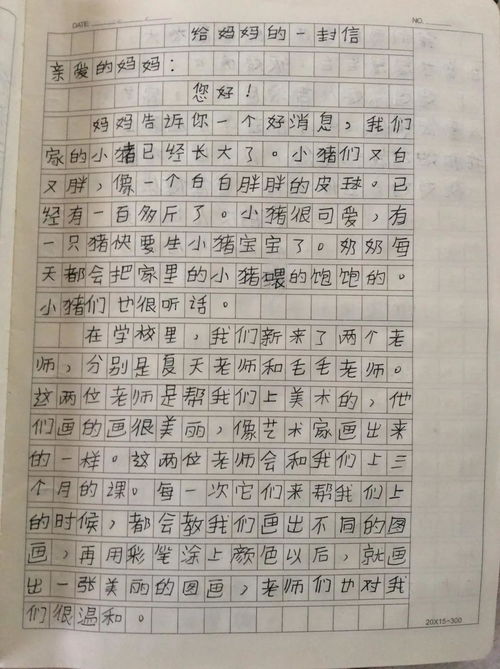 DATE
NO.
给妈妈的一封信
亲爱的妈妈：
您好！
妈妈告诉你一个好消息，我们
家的小猪已经长大了。小猪们又白
又胖，像一个白白胖胖的皮球。已
经有一百多斤了。小猪很可爱，有
一只猪快要生小猪宝宝了。奶奶每
天都会把家里的小猪喂的饱饱的。
小猪们也很听话。
在学校里，我们新来了两个老
师，分别是夏天老师和毛毛老师。
这两位老师是帮我们上美术的，他
们画的画很美丽，像艺术家画出来
的一样。这两位老师会和我们上三
个月的课。每一次它们来帮我们上
的时候，都会教我们画出不同的图
画，再用彩笔涂上颜色以后，就画
出一张美丽的图画，老师们也对我
们很温和。
20X15=300